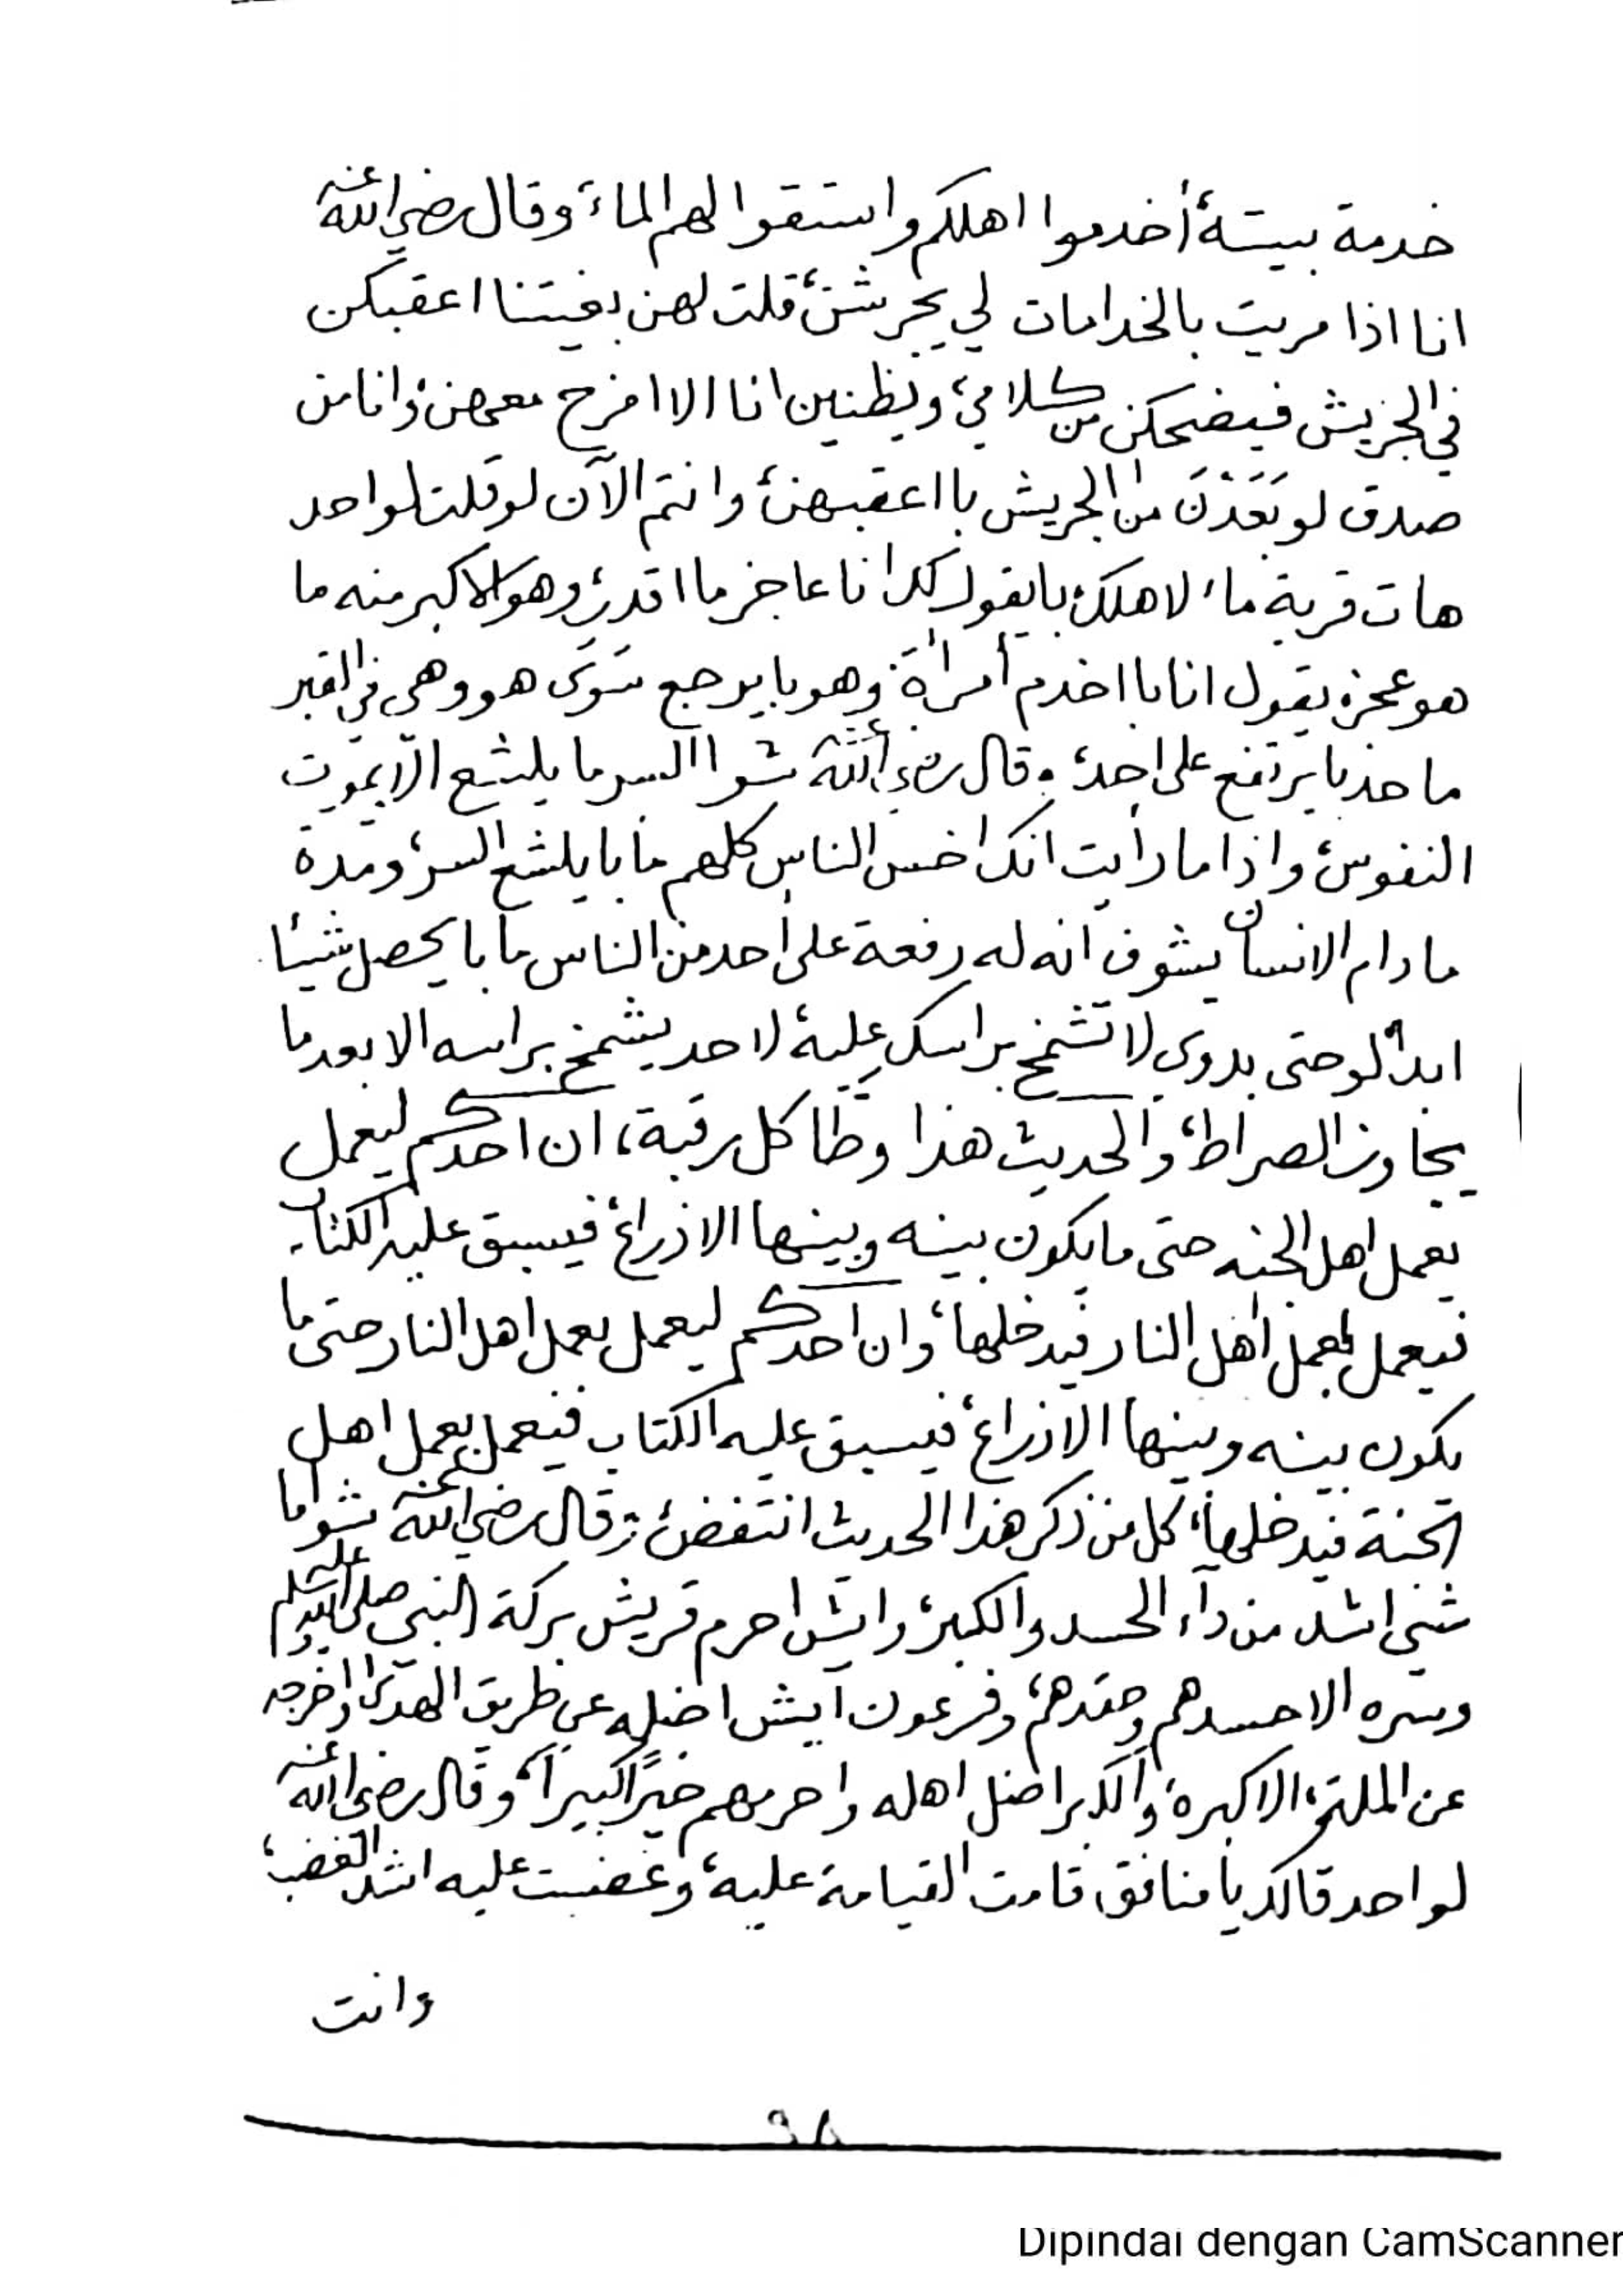 خدمة بيته، أخدموا اهلكم واستقوا لهم الماء، وقال رضي الله عنه
انا اذا مريت بالخدامات لي يجرشن، قلت لهن بغيتنا اعقبكن
في الجريش فيضحكن من كلامي، ويظنين انا الا امزح معهن، وانا من
صدق لو بَعَدْنَ من الجريش با اعقبهن، وانتم الآن لو قلت لواحد
هات قربة ماء لاهلك، با يقول لك انا عاجز ما اقدر، وهو الا كبر منه ما
هو عجز، يقول انا با اخدم أمرأة، وهو با يرجع سَوَى هو وهي في القبر
ما حد با يرتفع على احد، وقال رضي الله عنه شوا السر ما يلشع الا بموت
النفوس، واذا ما رأيت انك اخس الناس كلهم ما با يلشع السر، ومدة
ما دام الانسان يشوف انه له رفعة على أحد من الناس ما با يحصل شيئا
ابداً، لو حتى بدوى لا تشمخ براسك عليه، لاحد يشمخ براسه الا بعد ما
يجاوز الصراط، والحديث هذا وطَّا كل رقبة، ان احدكم ليعمل
بعمل اهل الجنه حتى ما يكون بينه وبينها الا ذراع، فيسبق عليه الكتاب
فيعمل بعمل أهل النار فيدخلها، وان احدكم ليعمل بعمل اهل النار حتى ما
يكون بينه وبينها الا ذراع، فيسبق عليه الكتاب فيعمل بعمل اهل
الجنة فيدخلها، كل من ذكر هذا الحديث انتفض، وقال رضي الله عنه شوا ما
شئ اشد من دآء الحسد والكبر، وايش احرم قريش بركة النبي صلى الله عليه وسلم
وسره الا حسدهم وحقدهم، وفرعون آيش اضله عن طريق الهدى، واخرجه
عن الملة، الا كبره، والكبر اضل اهله واحرمهم خيرًا كبيراً، وقال رضي الله عنه
لواحد قالك يا منافق، قامت القيامة عليه، وغضبت عليه اشد الغضب،
وانت
٩٨
Dipindai dengan CamScanner